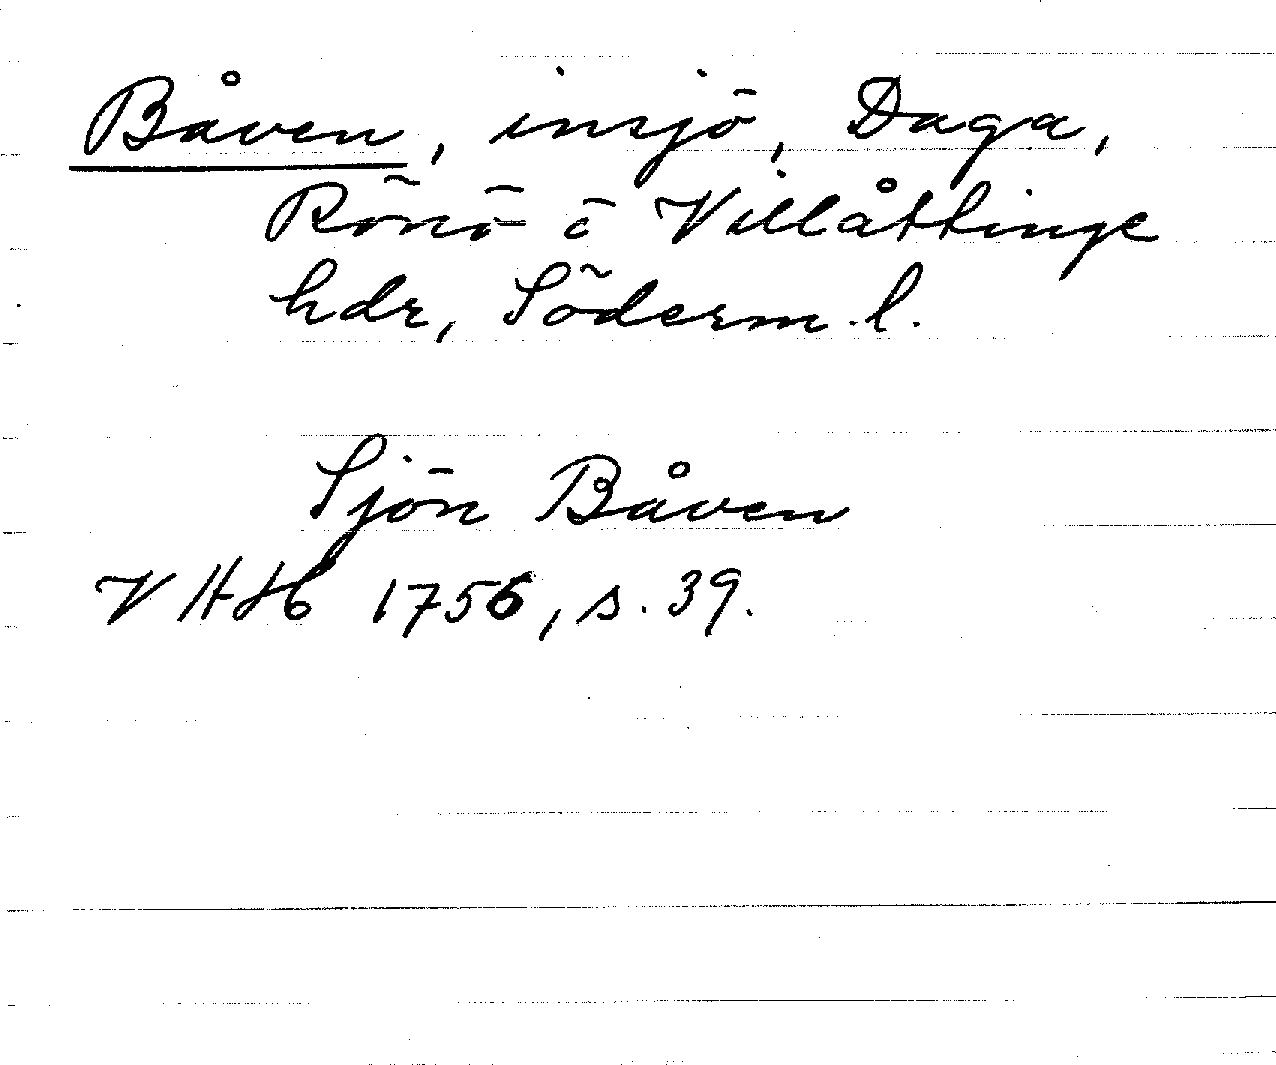 Båven, insjö, Daga,
Rönö o Villåttinge
hdr, Söderm.l.
Sjön Båven
VHAH 1756, s. 39.